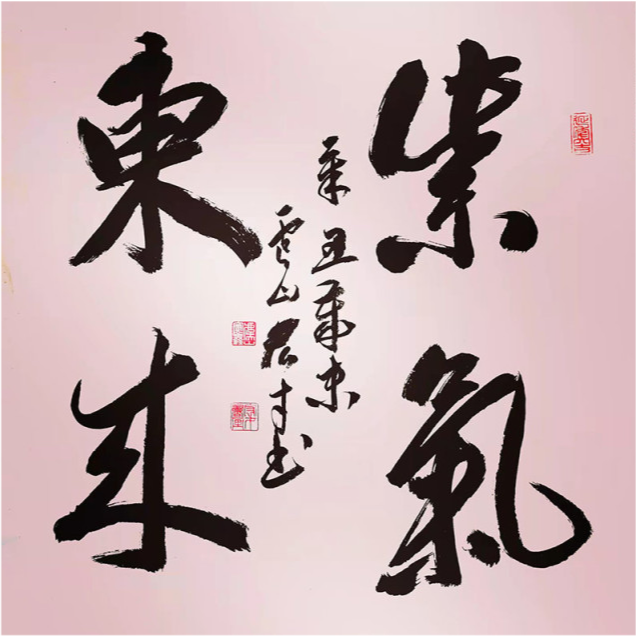 紫氣
東来
辛丑歲末
雲山居士書